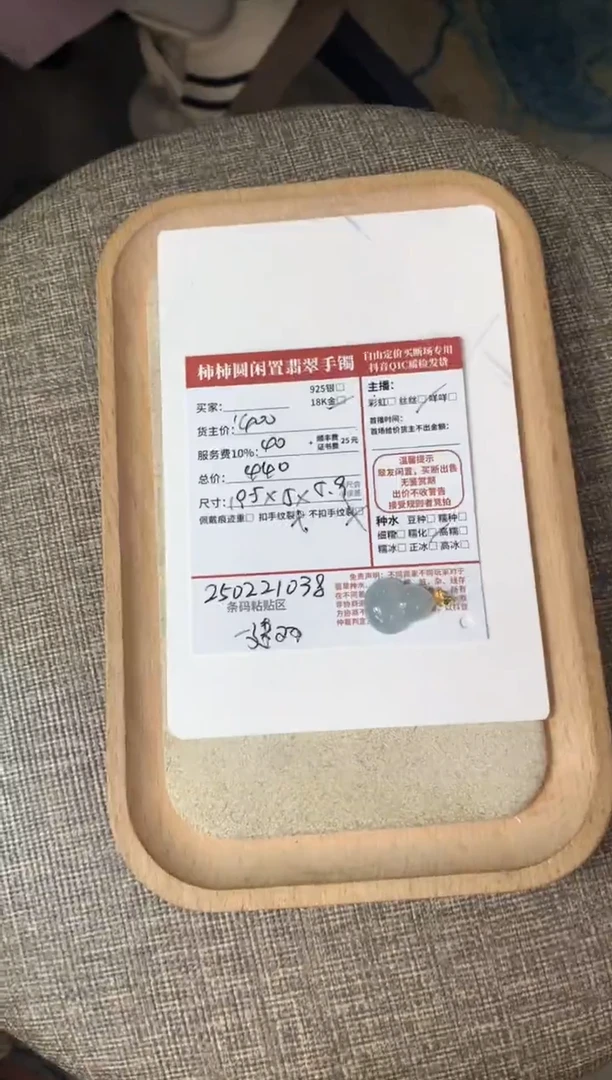 柿柿圆闲置翡翠手镯
自由定价买断场专用
抖音QIC质检发货
925银□
买家:
18K金□
货主价: 400
服务费10%: 40 + 顺丰费 证书费 25元
总价: 440
尺寸:
佩戴痕迹重□ 扣手纹裂□ 不扣手纹裂□
主播:
彩虹□ 丝丝□ 咩咩□
首播时间:
首场给价货主不出金额:
温馨提示
翠友闲置,买断出售
无鉴赏期
出价不收警告
接受规则者竞拍
种水 豆种□ 糯种□
细糯□ 糯化□ 高糯□
糯冰□ 正冰□ 高冰□
250221038
条码粘贴区